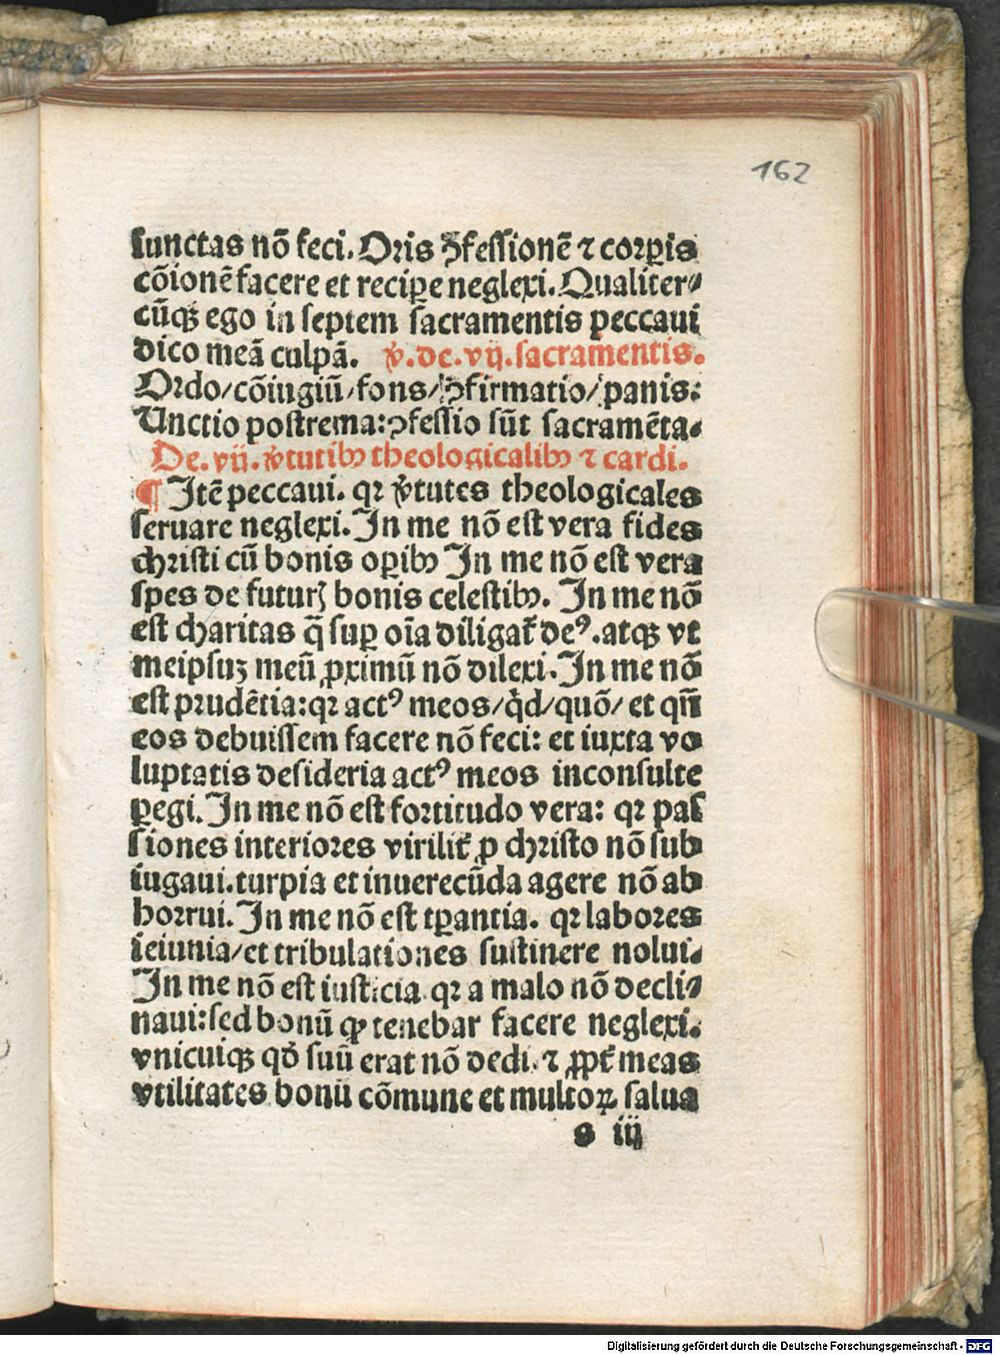 162
iunctas nō feci. Oris ꝯfessionē ⁊ corꝑis
cōionē facere et reciꝑe neglexi. Qualiter⸗
cūqꝫ ego in septem sacramentis peccaui
dico meā culpā. v̾.de.vij.sacramentis.
Ordo/cōiugiū/fons/ꝯfirmatio/panis:
Unctio postrema:ꝯfessio sūt sacramēta.
De.vii.v̾tutibꝰ theologicalibꝰ ⁊ cardi.
¶ Itē peccaui. qꝛ v̾tutes theologicales
seruare neglexi. In me nō est vera fides
christi cū bonis oꝑibꝰ In me nō est vera
spes de futurꝭ bonis celestibꝰ. In me nō
est charitas q̄ suꝑ oīa diligat᷑ deꝰ.atqꝫ vt
meipsuꝫ meū ꝓximū nō dilexi. In me nō
est prudētia:qꝛ actꝰ meos/qͥd/quō/ et qn̄
eos debuissem facere nō feci: et iuxta vo
luptatis desideria actꝰ meos inconsulte
ꝑegi. In me nō est fortitudo vera: qꝛ pas
siones interiores virilit᷑ ꝓ christo nō sub
iugaui.turpia et inuerecūda agere nō ab
horrui. In me nō est tꝑantia. qꝛ labores
ieiunia/et tribulationes sustinere nolui.
In me nō est iusticia qꝛ a malo nō decli⸗
naui:sed bonū qͦ tenebar facere neglexi.
vnicuiqꝫ qď suū erat nō dedi. ⁊ ꝓpt᷑ meas
vtilitates bonū cōmune et multoꝝ salua
s iij
Digitalisierung gefördert durch die Deutsche Forschungsgemeinschaft - DFG